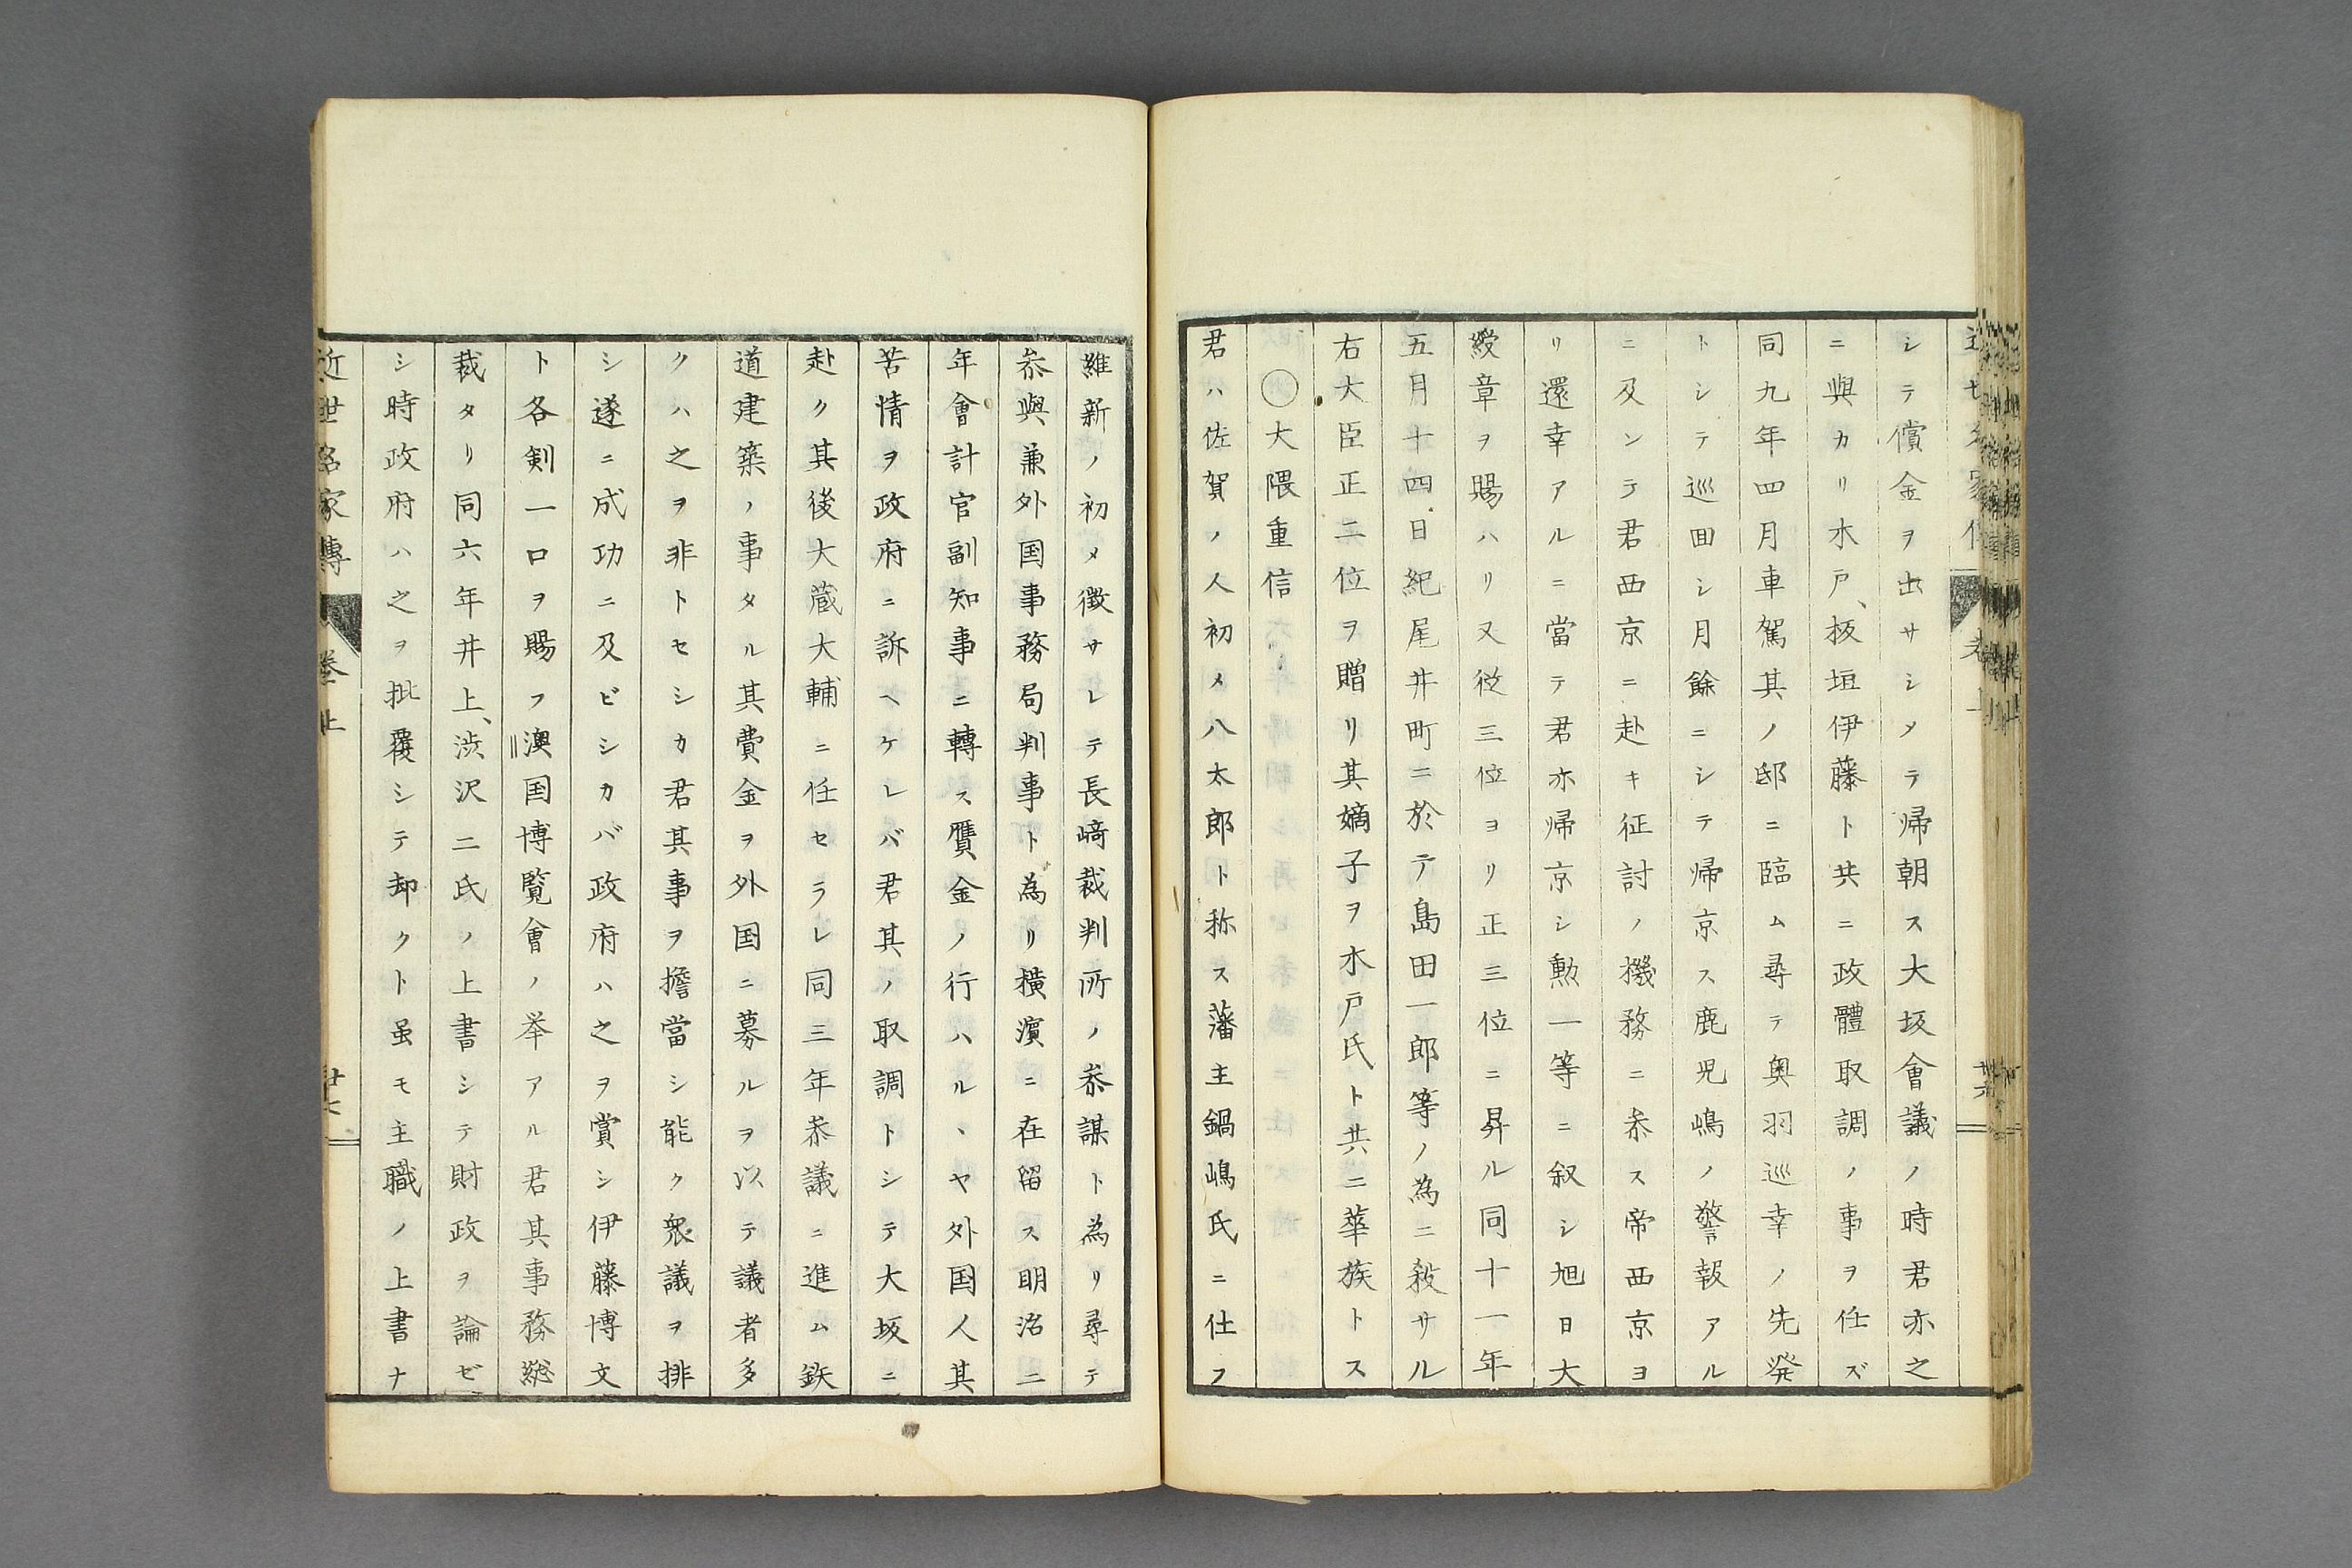 シテ償金ヲ出サシメテ帰朝ス大坂會議ノ時君亦之
ニ與カリ木戸、板垣伊藤ト共ニ政體取調ノ事ヲ任ズ
同九年四月車駕其ノ邸ニ臨ム尋テ奥羽巡幸ノ先発
トシテ巡回シ月餘ニシテ帰京ス鹿児嶋ノ警報アル
ニ及ンテ君西京ニ赴キ征討ノ機務ニ叅ス帝西京ヨ
リ還幸アルニ當テ君亦帰京シ勲一等ニ叙シ旭日大
綬章ヲ賜ハリ又従三位ヨリ正三位ニ昇ル同十一年
五月十四日紀尾井町ニ於テ島田一郎等ノ為ニ殺サル
右大臣正二位ヲ贈リ其嫡子ヲ木戸氏ト共ニ華族トス
○大隈重信
君ハ佐賀ノ人初メ八太郎ト称ス藩主鍋嶋氏ニ仕フ
維新ノ初メ徴サレテ長﨑裁判所ノ叅謀ト為リ尋テ
叅與兼外国事務局判事ト為リ横濱ニ在留ス明治二
年會計官副知事ニ轉ス贋金ノ行ハルヽヤ外国人其
苦情ヲ政府ニ訴ヘケレバ君其ノ取調トシテ大坂ニ
赴ク其後大蔵大輔ニ任セラレ同三年叅議ニ進ム鉄
道建築ノ事タル其費金ヲ外国ニ募ルヲ以テ議者多
クハ之ヲ非トセシカ君其事ヲ擔當シ能ク衆議ヲ排
シ遂ニ成功ニ及ビシカバ政府ハ之ヲ賞シ伊藤博文
ト各剣一口ヲ賜フ澳国博覧會ノ挙アル君其事務総
裁タリ同六年井上、渋沢二氏ノ上書シテ財政ヲ論ゼ
シ時政府ハ之ヲ批覆シテ却クト虽モ主職ノ上書ナ
近世名家傳 巻上 廿七